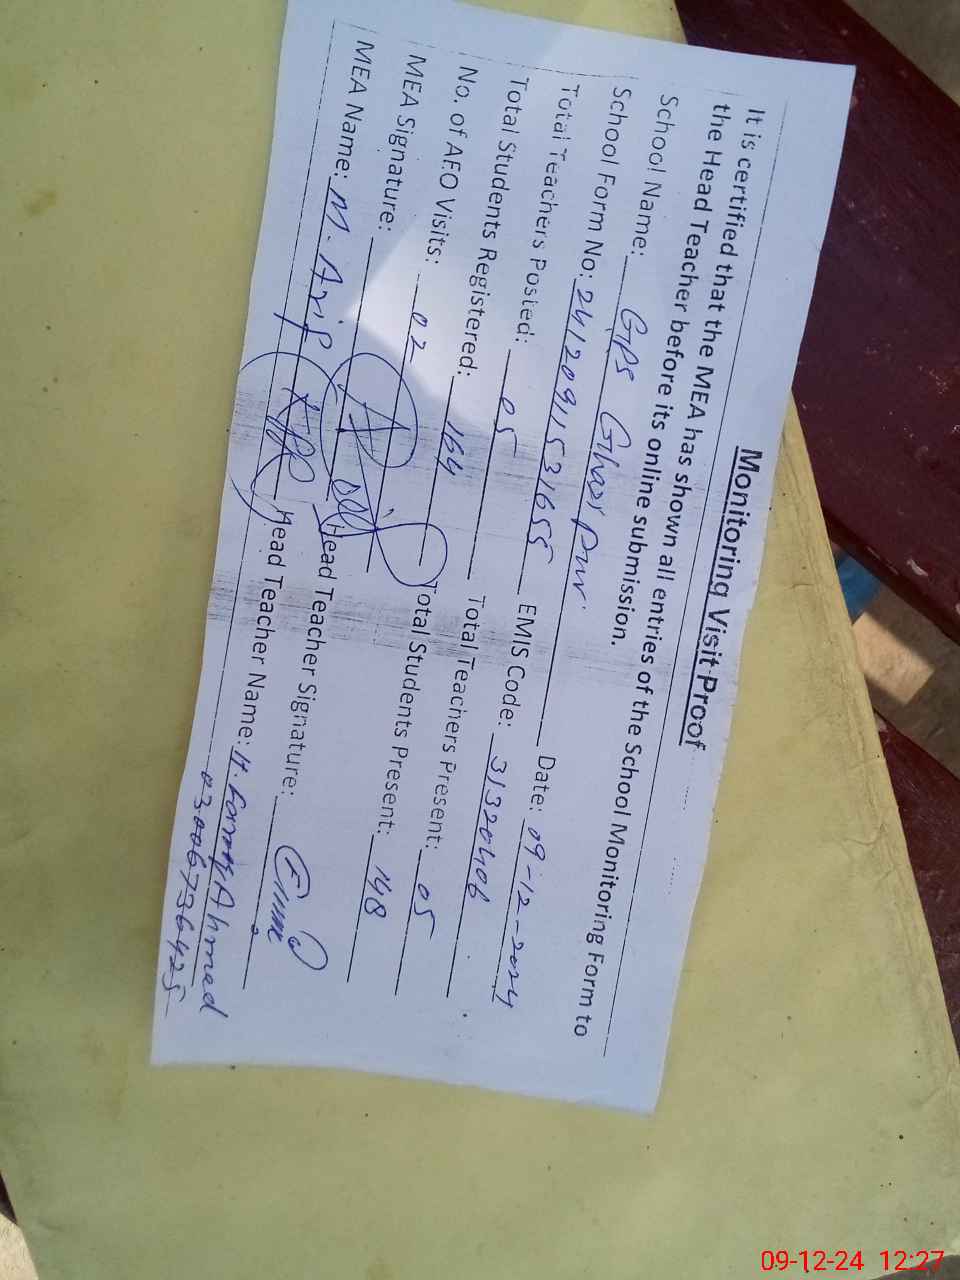 Monitoring Visit Proof
It is certified that the MEA has shown all entries of the School Monitoring Form to
the Head Teacher before its online submission.
School Name: GPS Ghazi Pur
School Form No: 24120911531655 Date: 09-12-2024
Total Teachers Posted: 05 EMIS Code: 31320406
Total Students Registered: 164 Total Teachers Present: 05
No. of AEO Visits: 02 Total Students Present: 148
MEA Signature: Head Teacher Signature:
MEA Name: M. Arif Head Teacher Name: H. Ahmad
03006736425
09-12-24 12:27